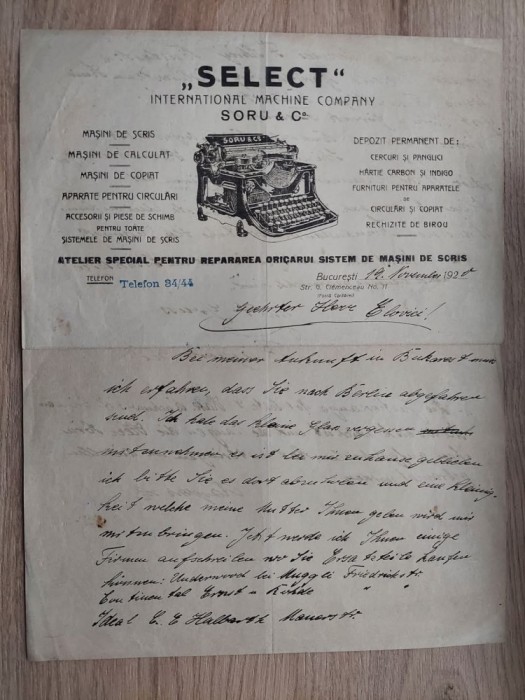 „SELECT“
INTERNATIONAL MACHINE COMPANY
SORU & Co.
MAȘINI DE SCRIS
MAȘINI DE CALCULAT
MAȘINI DE COPIAT
APARATE PENTRU CIRCULĂRI
ACCESORII ȘI PIESE DE SCHIMB
PENTRU TOATE
SISTEMELE DE MAȘINI DE SCRIS
SORU & Co
DEPOZIT PERMANENT DE:
CERCURI ȘI PANGLICI
HÂRTIE CARBON ȘI INDIGO
FURNITURI PENTRU APARATELE
DE
CIRCULĂRI ȘI COPIAT
RECHIZITE DE BIROU
ATELIER SPECIAL PENTRU REPARAREA ORIÇARUI SISTEM DE MAȘINI DE SCRIS
TELEFON
Telefon 34/44
București 12 November 192
Str. G. Clémenceau No. 11
Geehrter Herr Elovici!
Bei meiner Ankunft in Bukarest muss
ich erfahren, dass Sie nach Berlin abgefahren
sind. Ich habe das kleine Glas vergessen
mitzunehmen es ist bei mir zuhause geblieben
ich bitte Sie es dort abzuholen und eine Kleinig-
keit welche meine Mutter Ihnen geben wird mir
mitzubringen. Jetzt werde ich Ihnen einige
Firmen aufschreiben wo Sie Ersatzteile kaufen
können: Underwood bei Muggli Friedrichstr
Continental Ernst " "
Ideal C. E Halbarth Mauerstr.